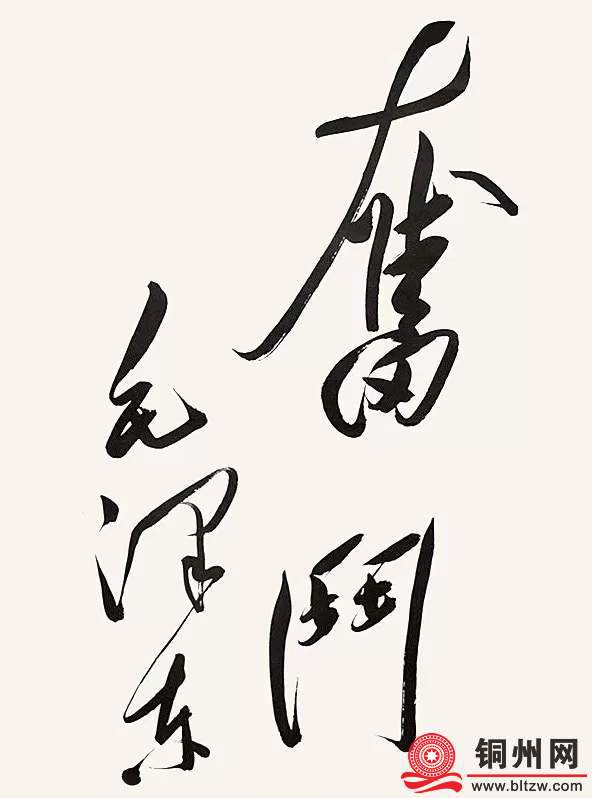 奮鬥
毛澤东
铜州网
www.bltzw.com